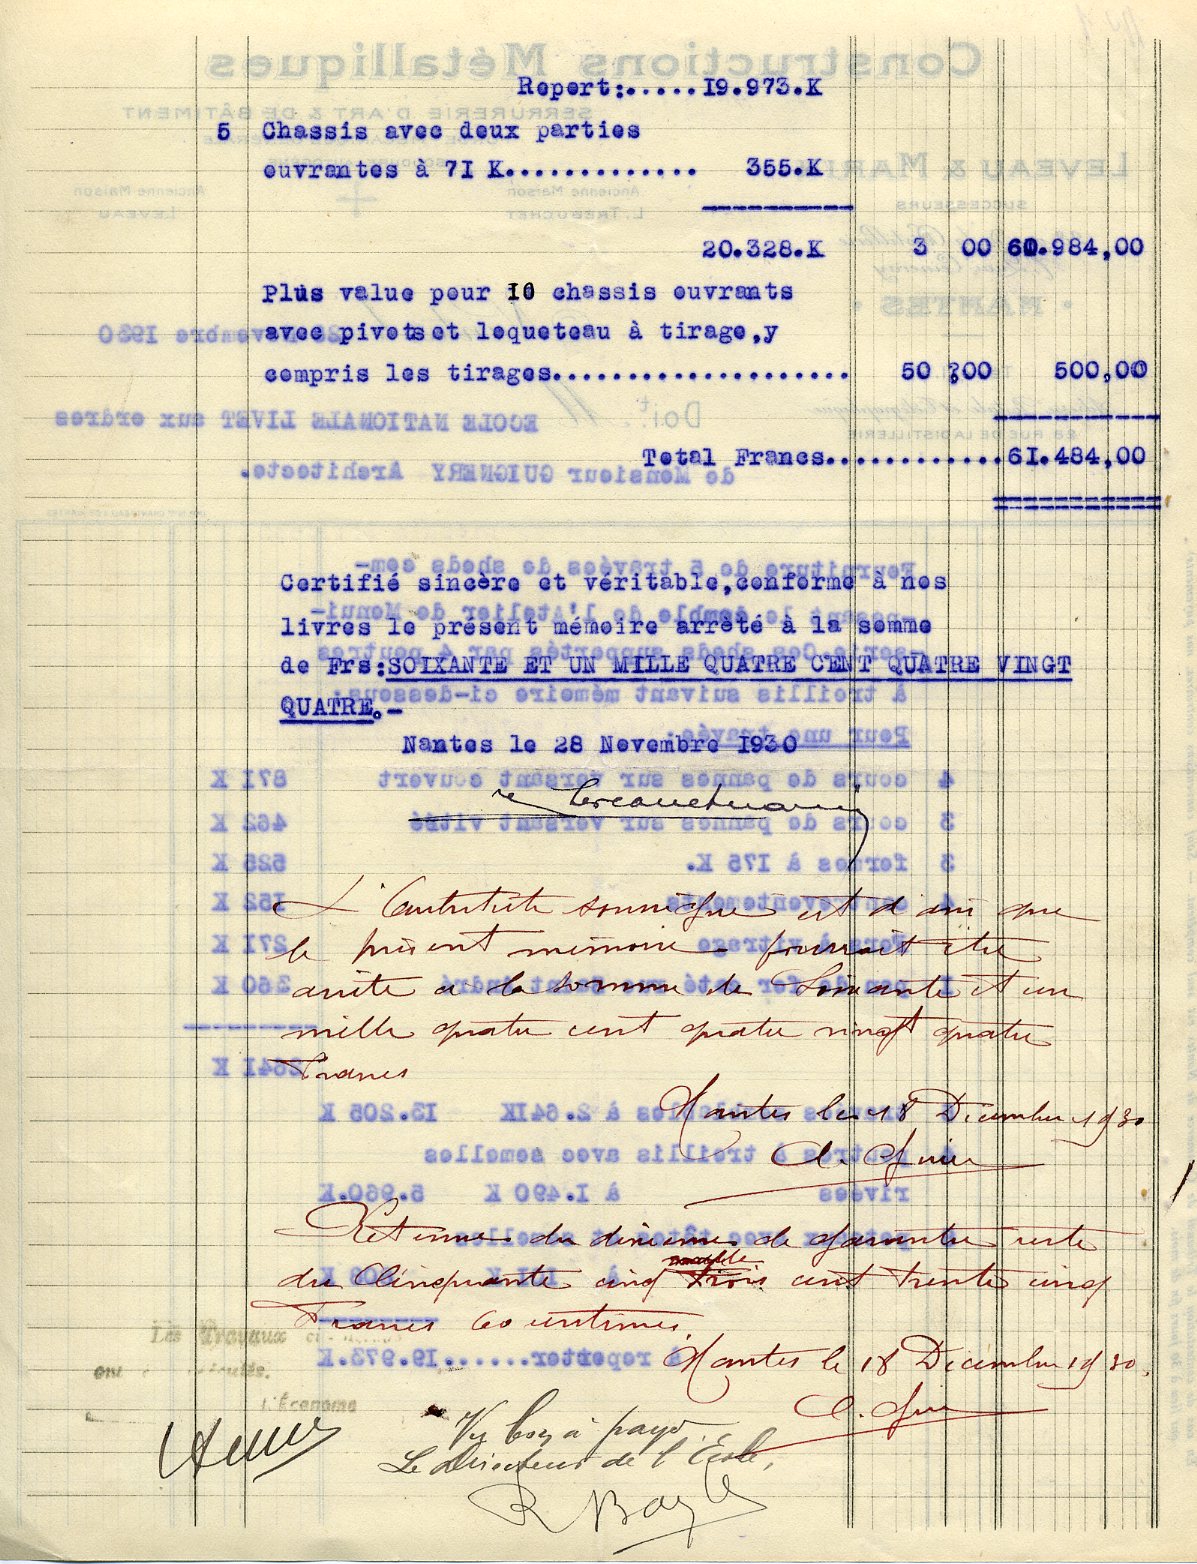 Report:.....19.973.K
5 Chassis avec deux parties
ouvrantes à 71 K.............. 355.K
20.328.K 3 00 60.984,00
Plus value pour 10 chassis ouvrants
avec pivots et loqueteau à tirage,y
compris les tirages..................... 50 ,00 500,00
Total Francs.............61.484,00
Certifié sincère et véritable,conforme à nos
livres le présent mémoire arrêté à la somme
de Frs:SOIXANTE ET UN MILLE QUATRE CENT QUATRE VINGT
QUATRE.-
Nantes le 28 Novembre 1930
L'Architecte soussigné est d'avis que
le présent mémoire pourrait être
arrêté à la somme de Soixante et un
mille quatre cent quatre vingt quatre
Francs
Nantes le 18 Décembre 1930
Retenue du dixième de garantie reste
du Cinquante cinq mille trois cent trente cinq
Francs 60 centimes
Nantes le 18 Décembre 1930.
Les Travaux
ont
L'Econome
Vu bon à payer
Le Directeur de l'Ecole,